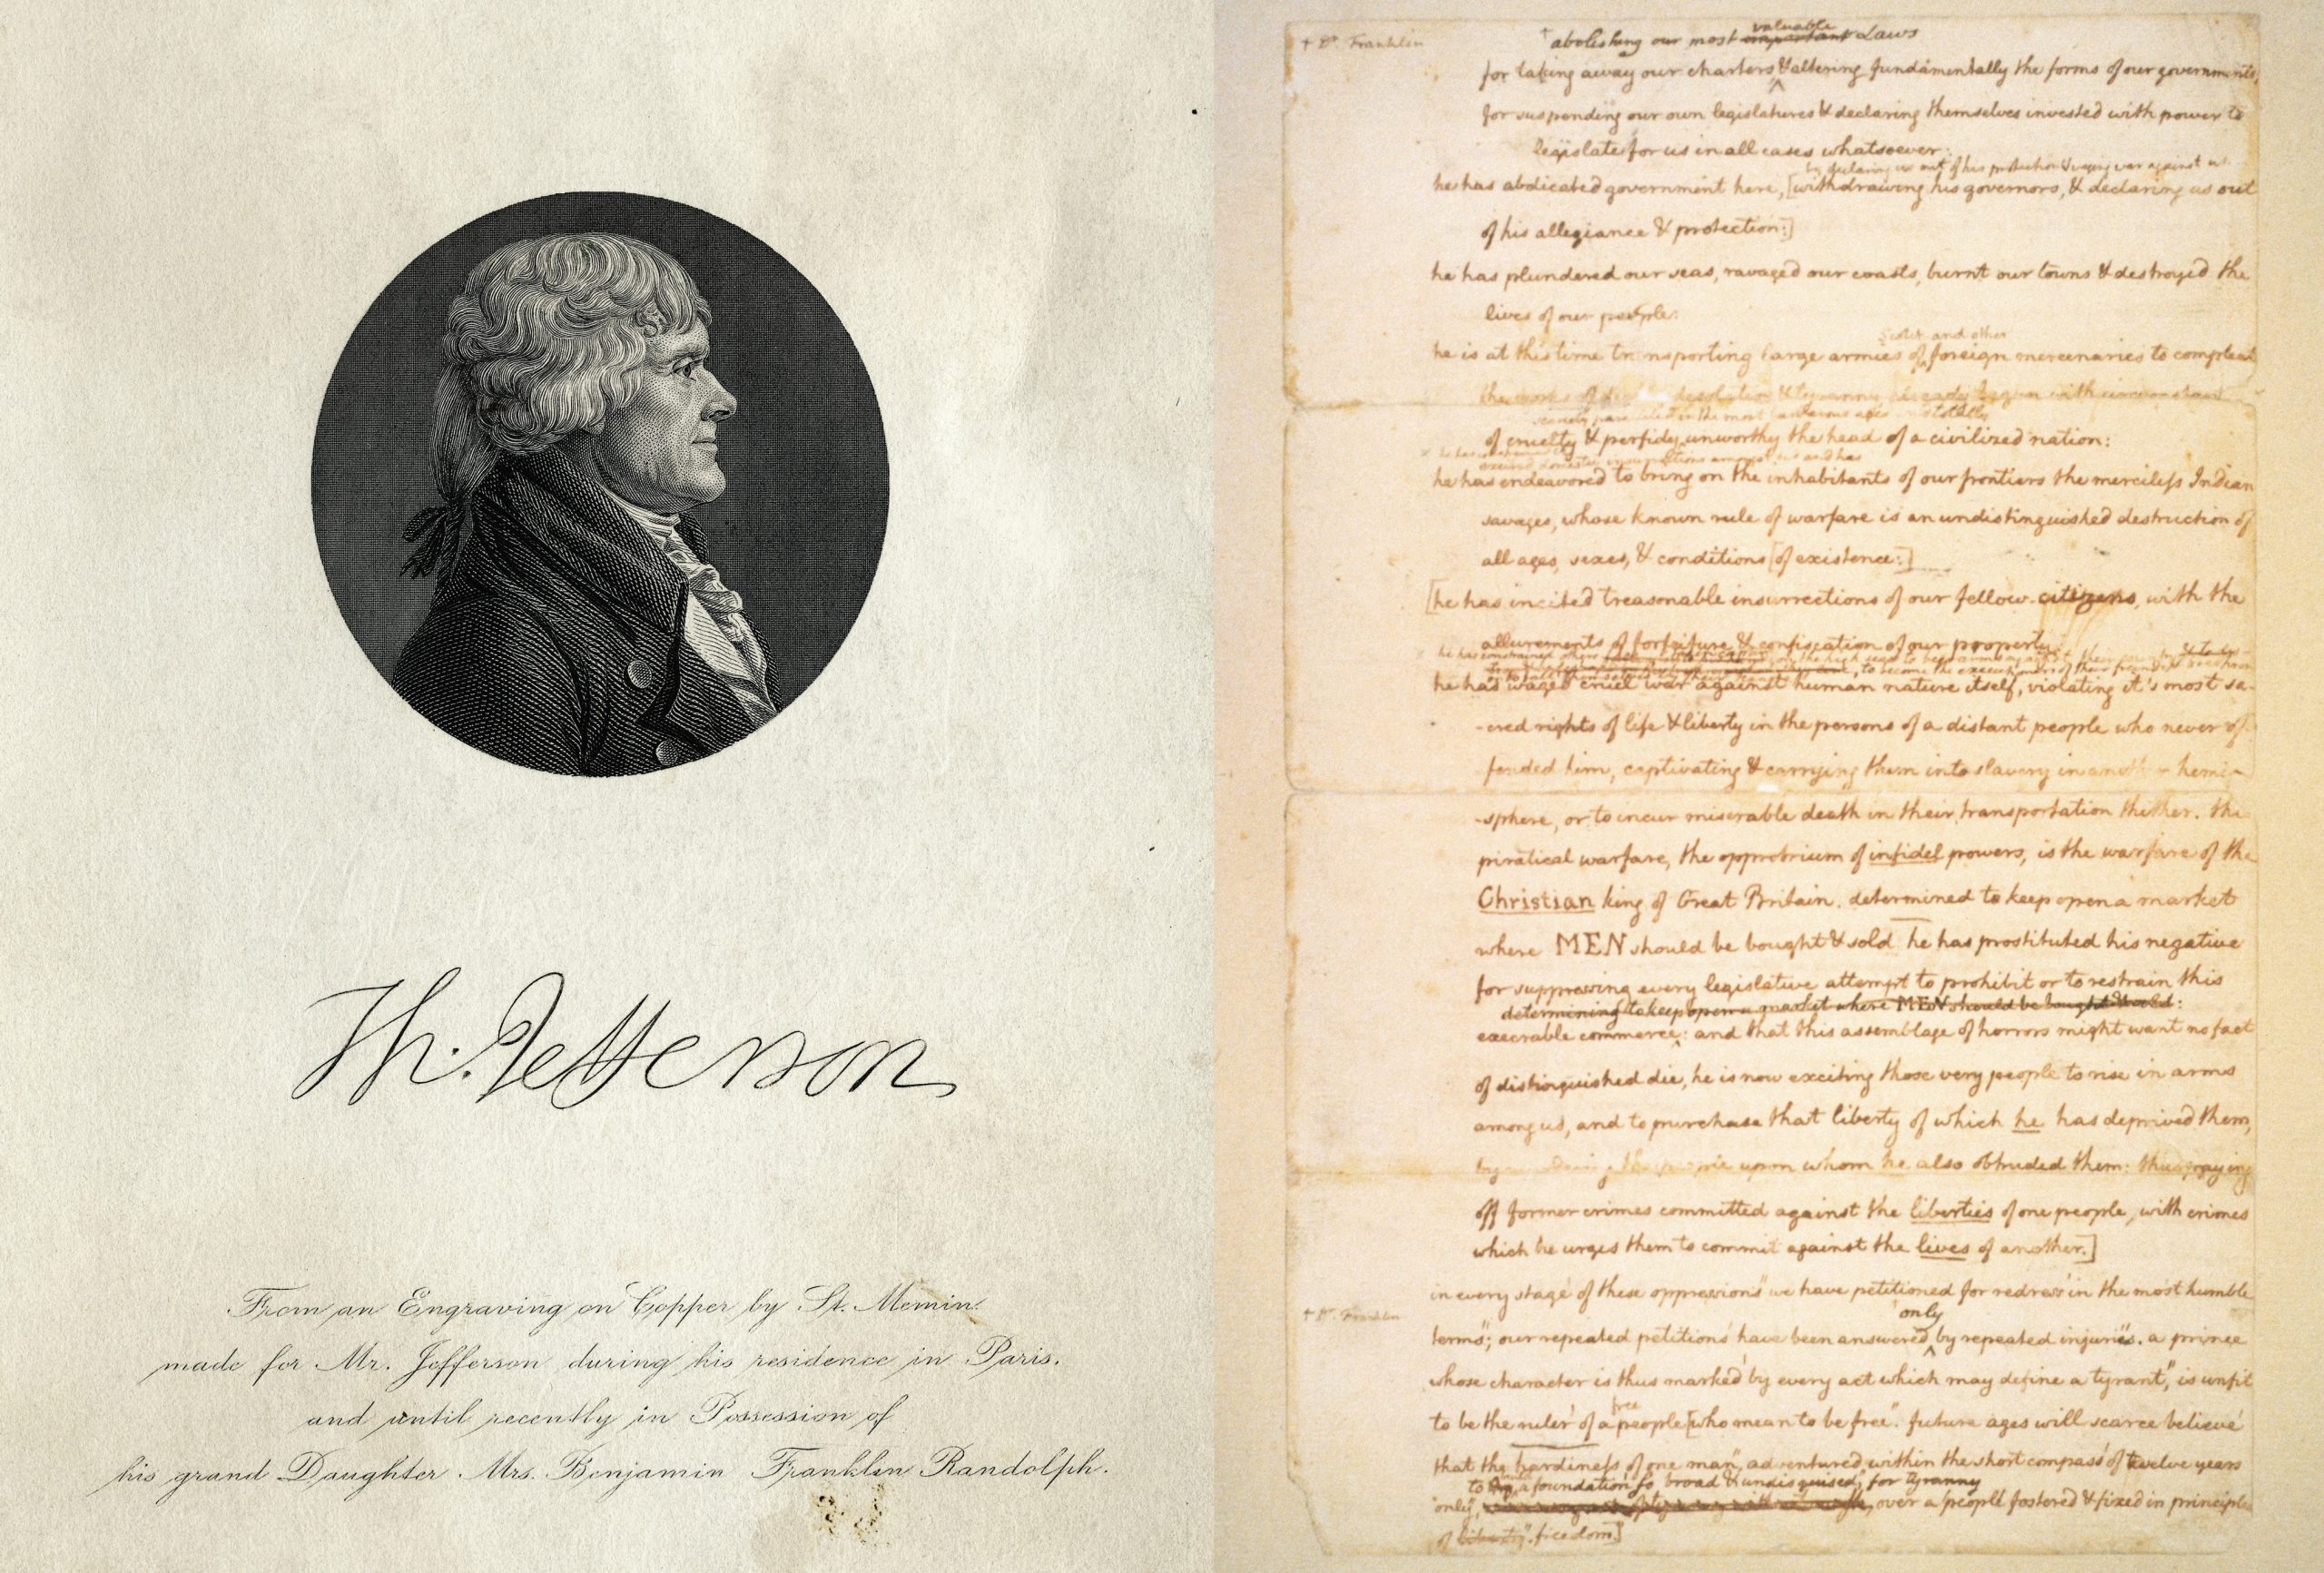 Th. Jefferson
From an Engraving on Copper by St. Memin.
made for Mr. Jefferson during his residence in Paris.
and until recently in Possession of
his grand Daughter Mrs. Benjamin Franklin Randolph.
+ Dr. Franklin
+ abolishing our most valuable important Laws
for taking away our charters & altering fundamentally the forms of our governments,
for suspending our own legislatures & declaring themselves invested with power to
legislate for us in all cases whatsoever:
by declaring us out of his protection & waging war against us
he has abdicated government here, [withdrawing his governors, & declaring us out
of his allegiance & protection:]
he has plundered our seas, ravaged our coasts, burnt our towns & destroyed the
lives of our people:
Scotch and other
he is at this time transporting large armies of foreign mercenaries to compleat
the works of desolation & tyranny already begun with circumstances
scarcely paralleled in the most barbarous ages totally
of cruelty & perfidy unworthy the head of a civilized nation:
excited domestic insurrections amongst us and has
he has endeavored to bring on the inhabitants of our frontiers the merciless Indian
savages, whose known rule of warfare is an undistinguished destruction of
all ages, sexes, & conditions [of existence:]
[he has incited treasonable insurrections of our fellow-citizens, with the
allurements of forfeiture & confiscation of our property:
he has constrained
to become the executioners of their friends
he has waged cruel war against human nature itself, violating it's most sa-
-cred rights of life & liberty in the persons of a distant people who never of-
fended him, captivating & carrying them into slavery in another hemi-
-sphere, or to incur miserable death in their transportation thither. this
piratical warfare, the opprobrium of infidel powers, is the warfare of the
Christian king of Great Britain. determined to keep open a market
where MEN should be bought & sold he has prostituted his negative
for suppressing every legislative attempt to prohibit or to restrain this
determining to keep open a market where MEN should be bought & sold:
execrable commerce: and that this assemblage of horrors might want no fact
of distinguished die, he is now exciting those very people to rise in arms
among us, and to purchase that liberty of which he has deprived them,
by upon whom he also obtruded them: thus paying
off former crimes committed against the liberties of one people, with crimes
which he urges them to commit against the lives of another.]
in every stage of these oppressions we have petitioned for redress in the most humble
+ Dr. Franklin
only
terms; our repeated petitions have been answered by repeated injuries. a prince
whose character is thus marked by every act which may define a tyrant, is unfit
free
to be the ruler of a people [who mean to be free. future ages will scarce believe
that the hardiness of one man, adventured within the short compass of twelve years
to a foundation so broad & undisguised, for tyranny
only, over a people fostered & fixed in principles
of liberty. freedom]